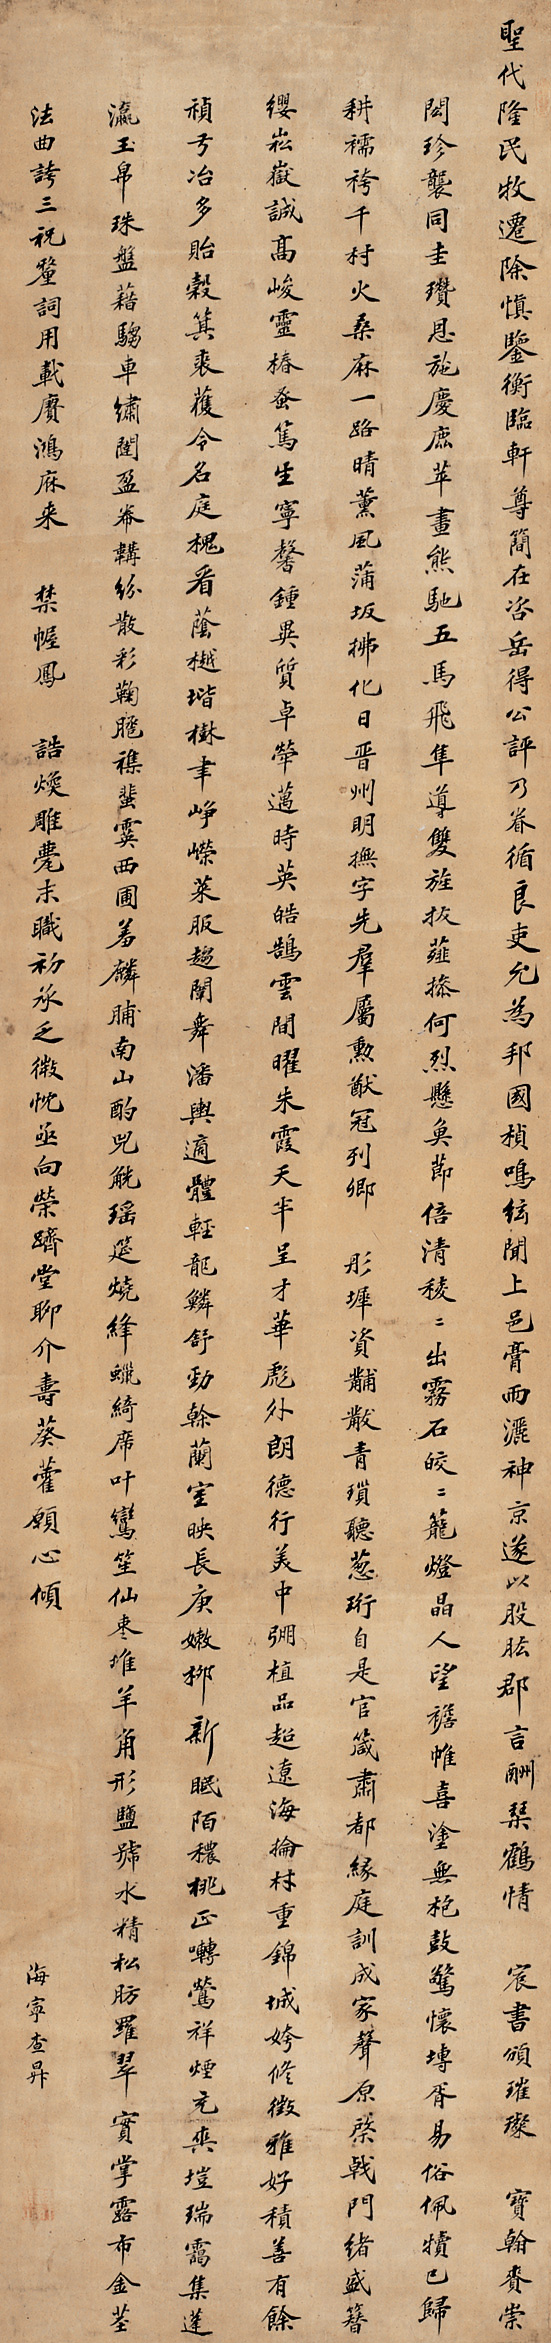 聖代隆民牧遷除慎鑒衡臨軒尊簡在咨岳得公評乃眷循良吏允為邦國楨鳴絃聞上邑膏雨灑神京遂以股肱郡言酬琴鶴情 宸書頒璀璨 寶翰賚崇
閎珍襲同圭瓚恩施慶鹿苹畫熊馳五馬飛隼導雙旌拔薤操何烈懸魚節倍清稜〻出霧石皎〻籠燈晶人望襜帷喜塗無枹鼓驚懷塼胥易俗佩犢已歸
耕襦袴千村火桑麻一路晴薰風蒲坂拂化日晋州明撫字先羣屬勲猷冠列卿 彤墀資黼黻青瑣聽蔥珩自是官箴肅都緣庭訓成家聲原棨戟門緒盛簪
纓崧嶽誠高峻靈椿蚤篤生寧馨鍾異質卓犖邁時英皓鵠雲間曜朱霞天半呈才華彪外朗德行美中弸植品超遼海掄材重錦城姱修徵雅好積善有餘
禎弓冶多貽穀箕裘獲令名庭槐看蔭樾堦樹聿崢嶸萊服趨闈舞潘輿適體輕龍鱗舒勁榦蘭室映長庚嫩栁新眠陌穠桃正囀鶯祥煙充爽塏瑞靄集蓬
瀛玉帛珠盤藉騶車繡闥盈帣韝紛散彩鞠䠆襍蜚霙西圃羞麟脯南山酌兕觥瑤筵燒絳蠟綺席叶鸞笙仙棗堆羊角形鹽號水精松肪羅翠實掌露布金莖
法曲誇三祝蕫詞用載賡鴻庥来 禁幄鳳 誥煥雕甍末職初承乏微忱亟向榮躋堂聊介壽葵藿願心傾
海寧查昇